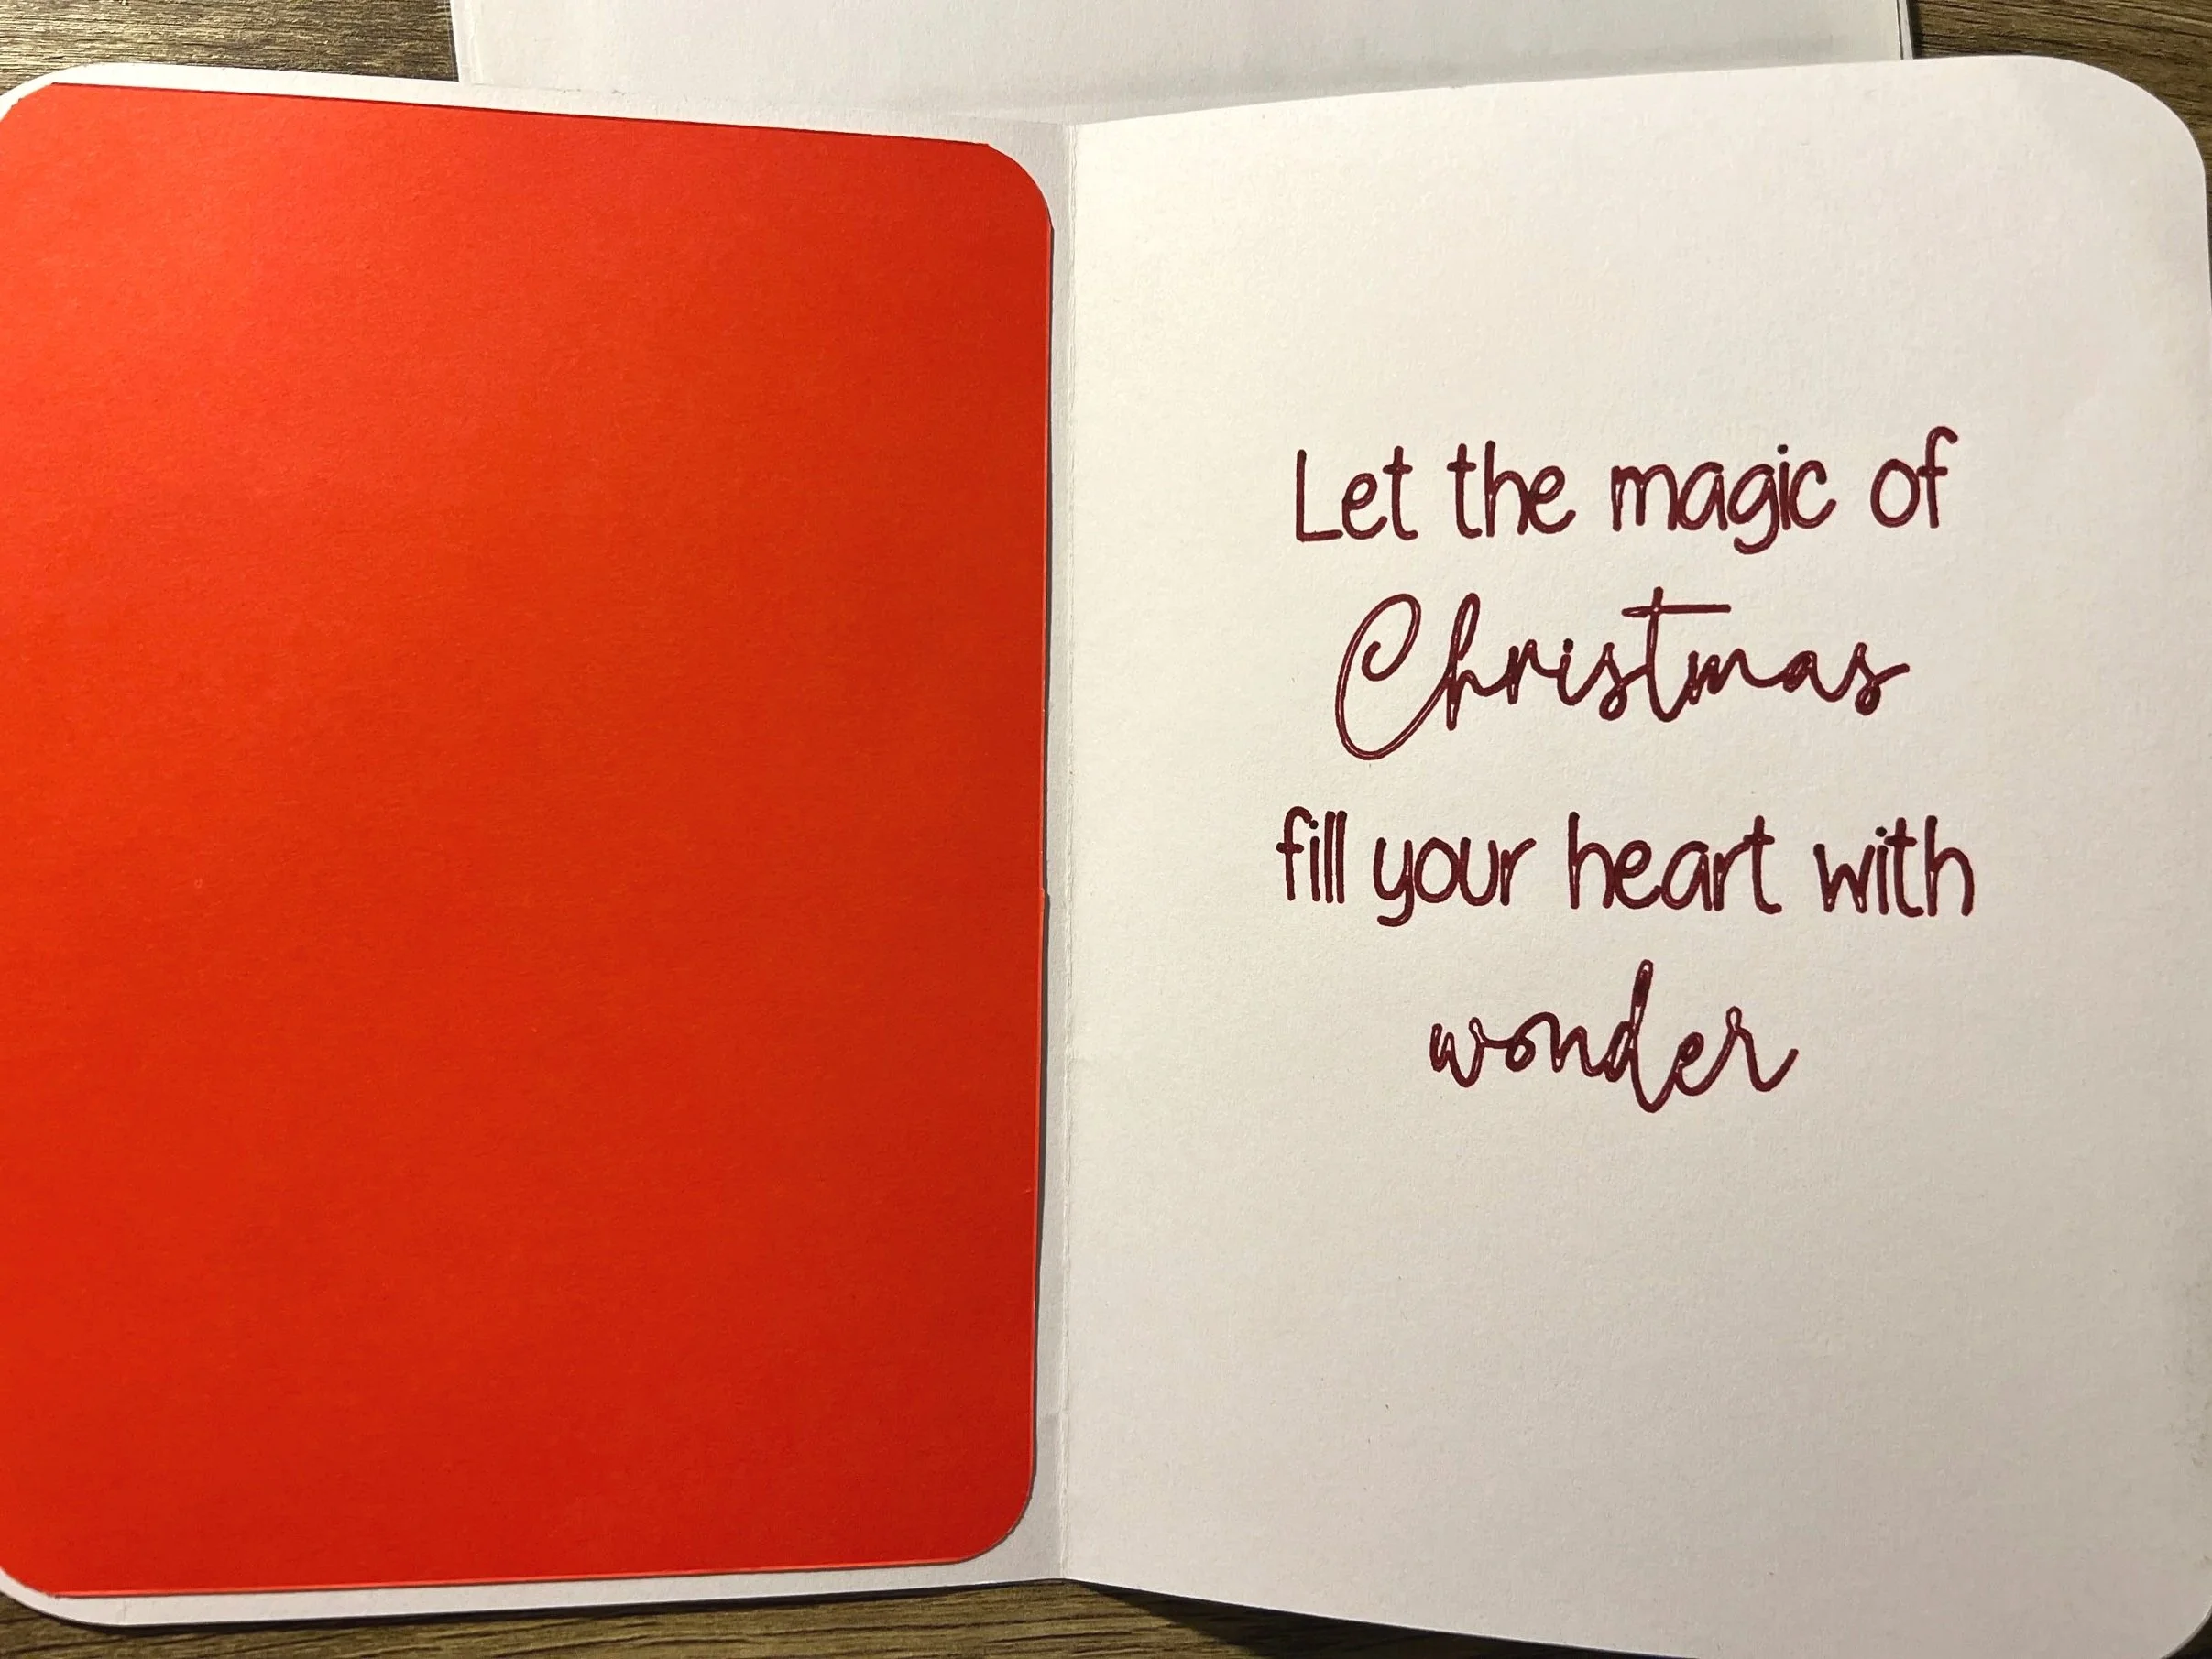 Let the magic of
Christmas
fill your heart with
wonder